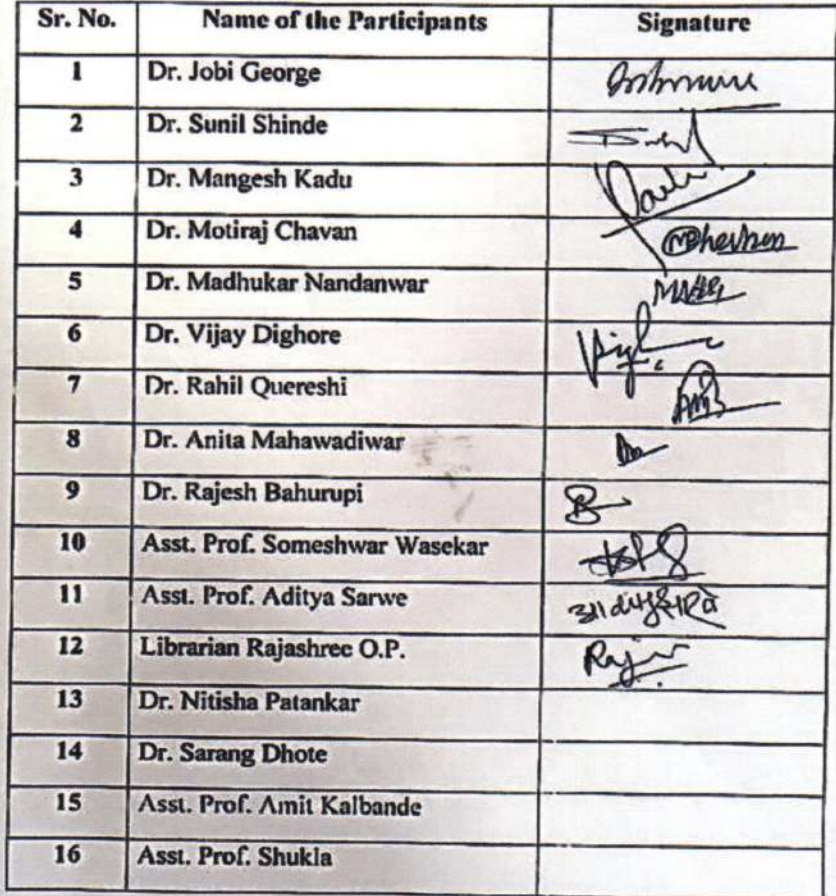 Sr. No. Name of the Participants Signature
1 Dr. Jobi George
2 Dr. Sunil Shinde
3 Dr. Mangesh Kadu
4 Dr. Motiraj Chavan
5 Dr. Madhukar Nandanwar
6 Dr. Vijay Dighore
7 Dr. Rahil Quereshi
8 Dr. Anita Mahawadiwar
9 Dr. Rajesh Bahurupi
10 Asst. Prof. Someshwar Wasekar
11 Asst. Prof. Aditya Sarwe
12 Librarian Rajashree O.P.
13 Dr. Nitisha Patankar
14 Dr. Sarang Dhote
15 Asst. Prof. Amit Kalbande
16 Asst. Prof. Shukla